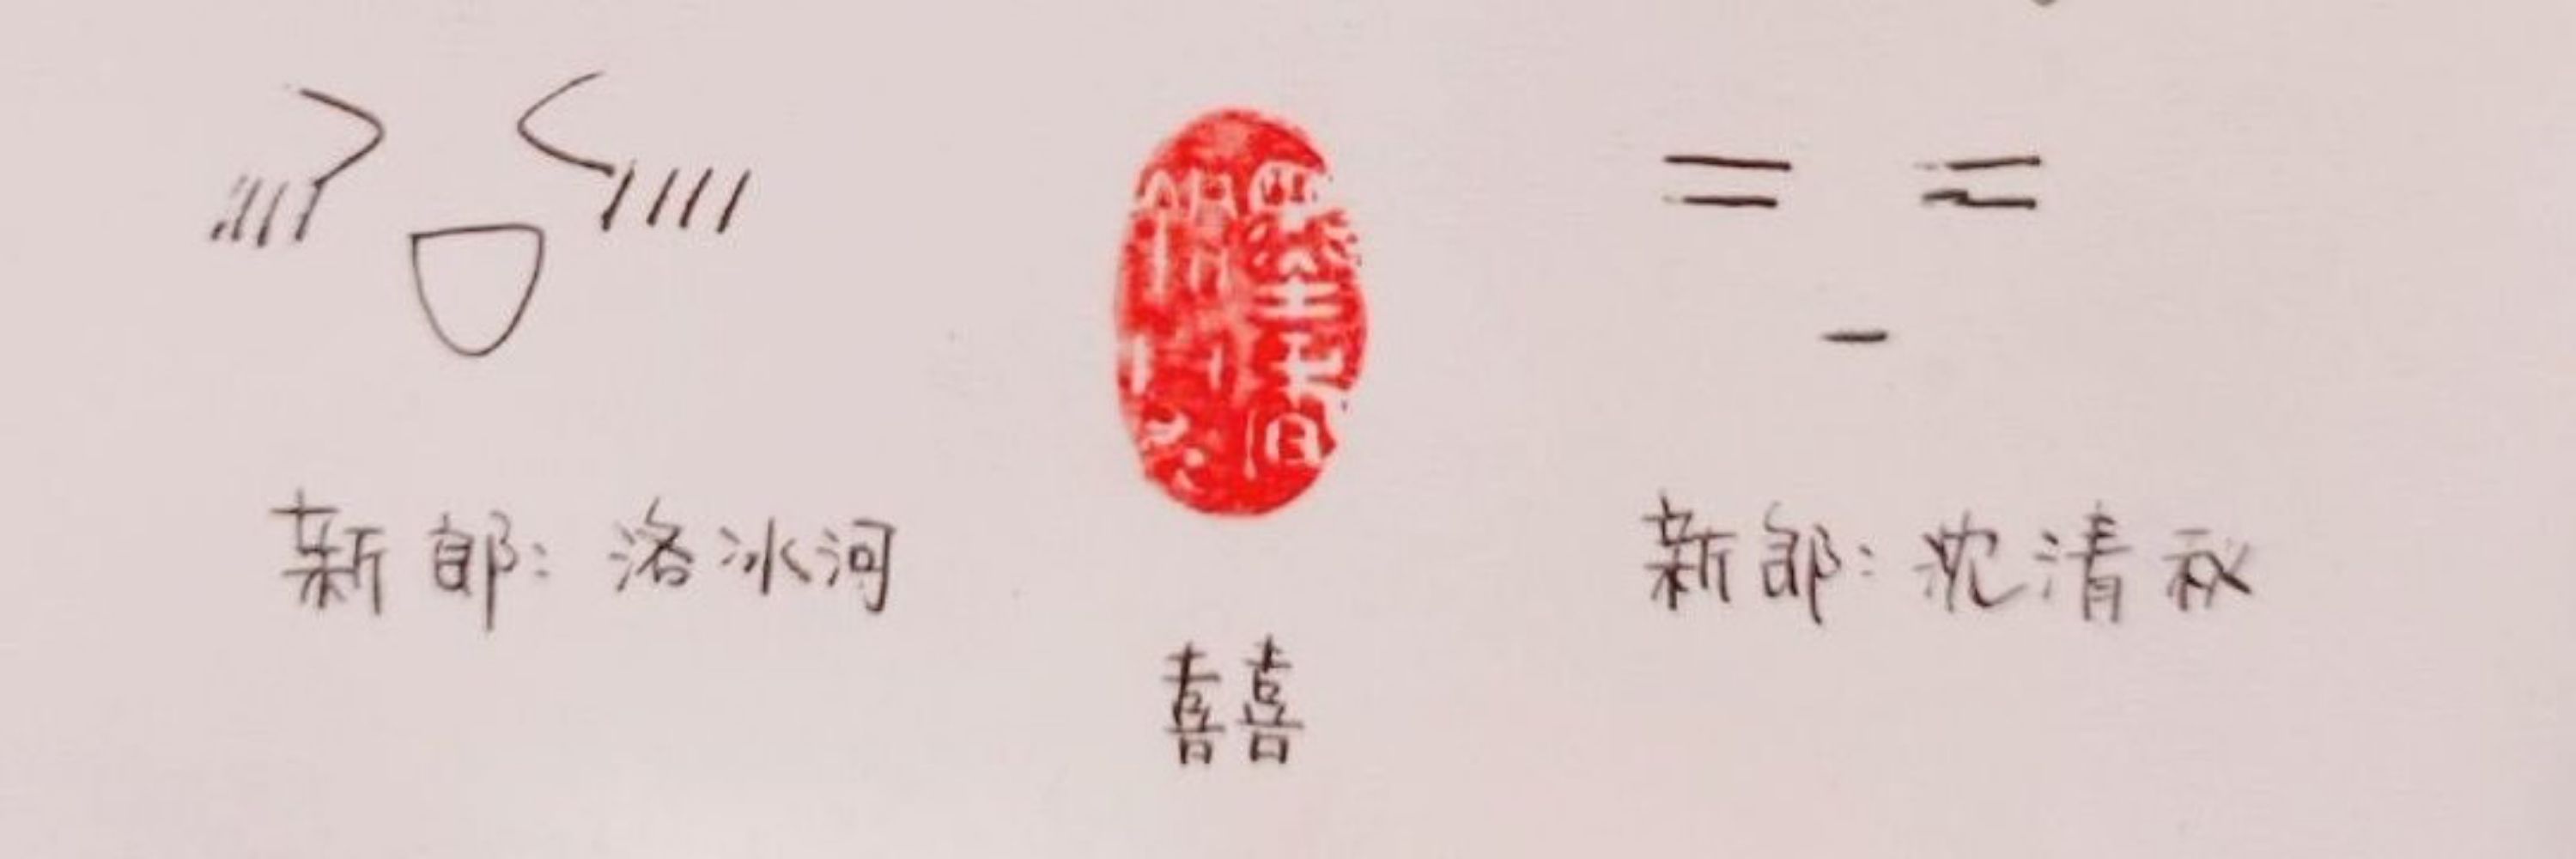 新郎：洛冰河
新郎：沈清秋
囍